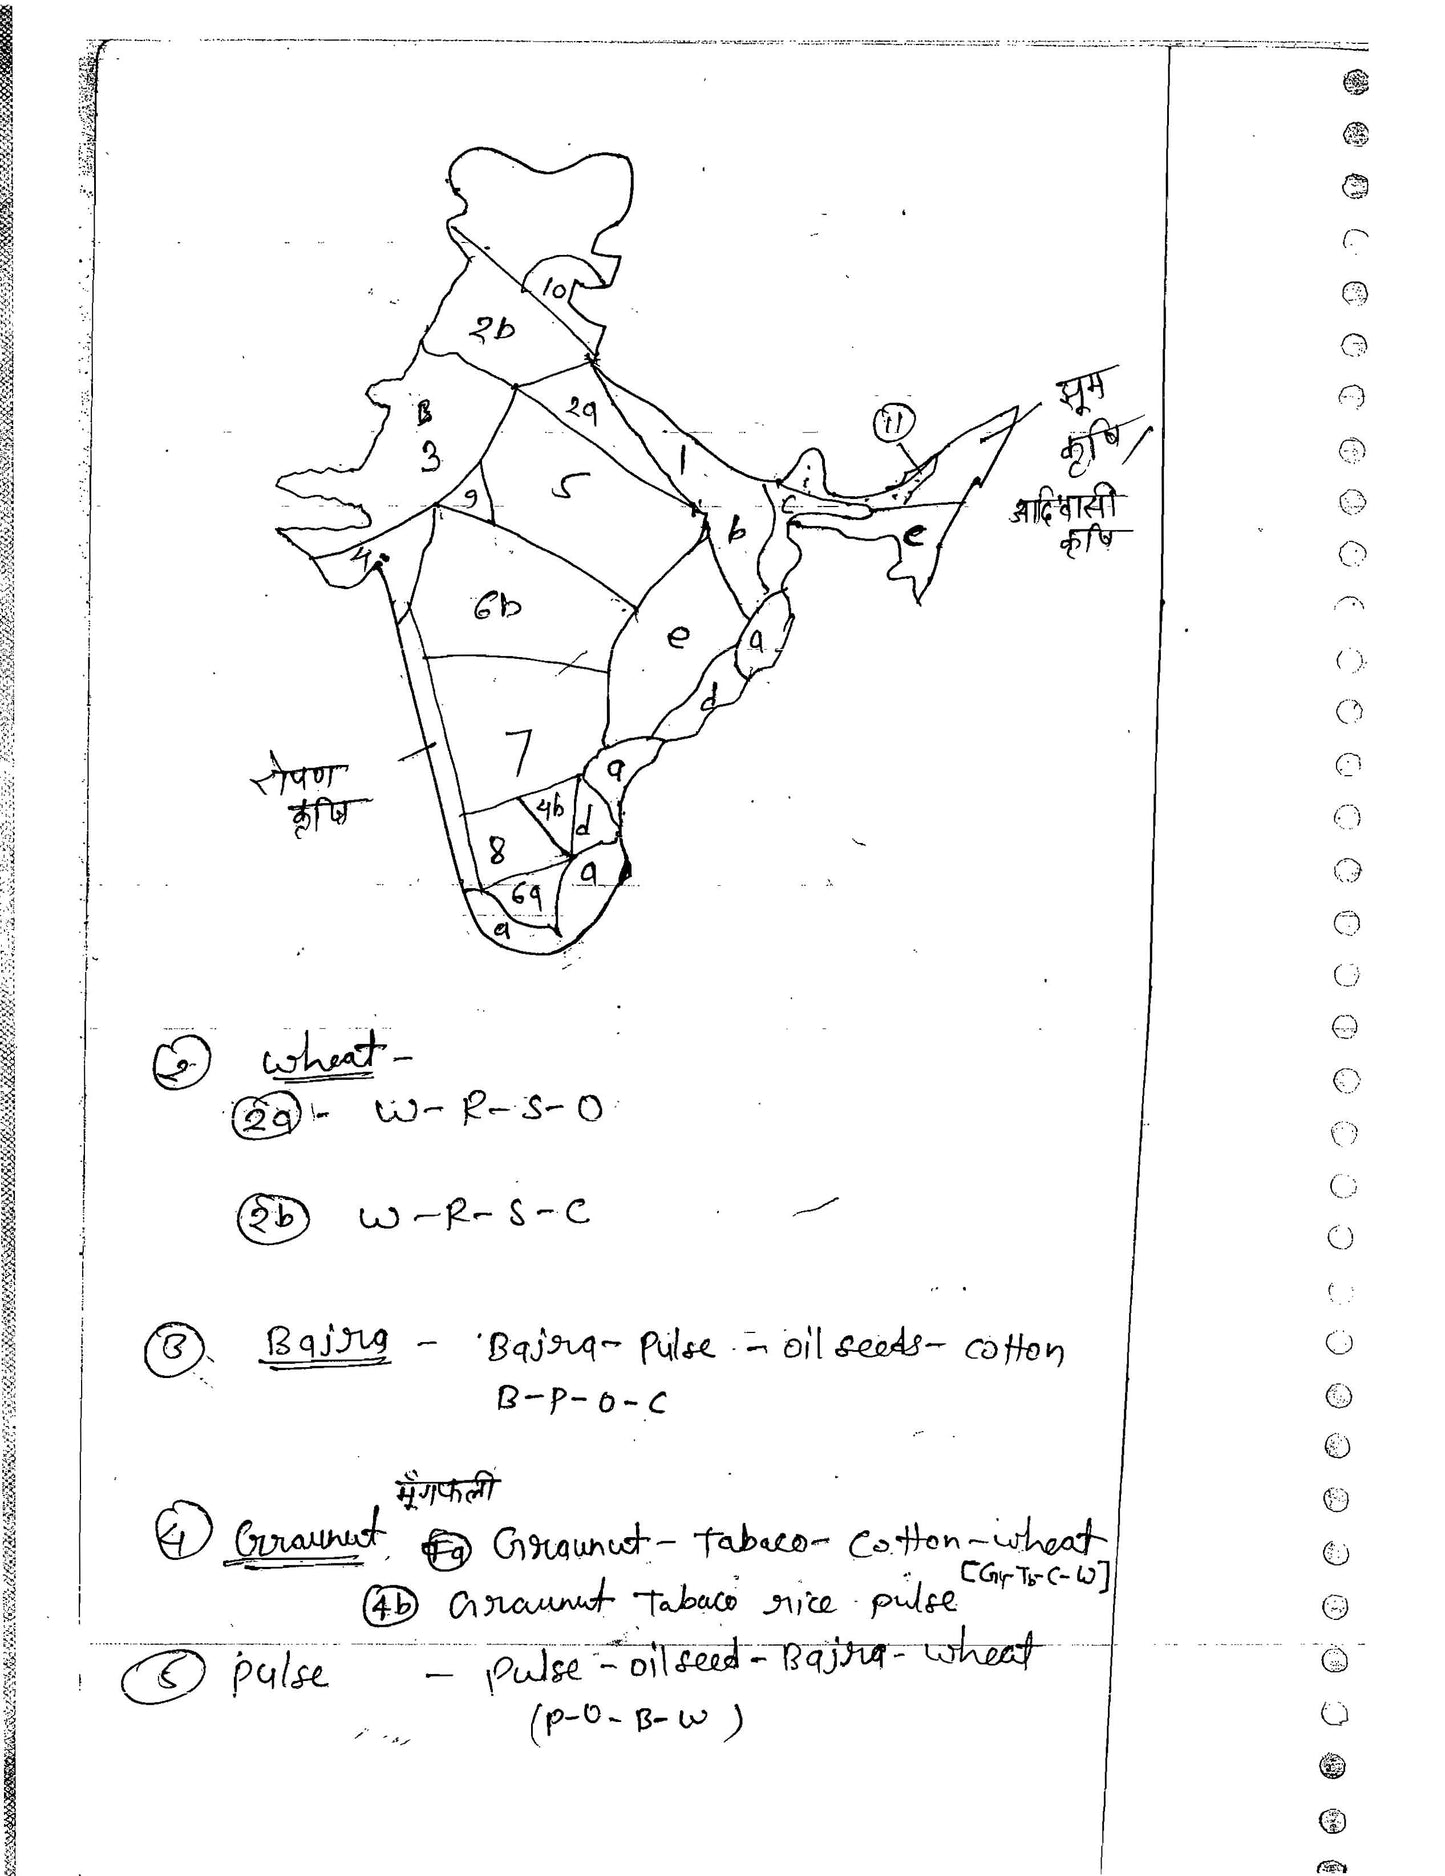 10
2b
B
3
2a
1
11
झूम
कृषि /
आदिवासी
कृषि
9
5
b
c
e
4
6b
e
a
d
रोपण
कृषि
7
a
4b
d
8
a
6a
a
2 Wheat -
2a :- W - R - S - O
2b W - R - S - C
3 Bajra - Bajra - Pulse - oil seeds - cotton
B - P - O - C
मूँगफली
4 Graunut 4a Graunut - Tabaco - Cotton - wheat
[G-Tb-C-W]
4b Graunut Tabaco rice pulse
5 Pulse - Pulse - oil seed - Bajra - wheat
(P-O-B-W)